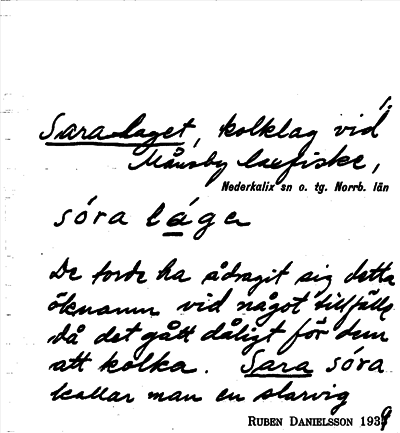 1.
Saralaget, kolklag vid
Månsby laxfiske,
Nederkalix sn o. tg. Norrb. län
sóra láger
De torde ha ådragit sig detta
öknamn vid något tillfälle
då det gått dåligt för dem
att kolka. Sara sóra
kallar man en slarvig
RUBEN DANIELSSON 1939